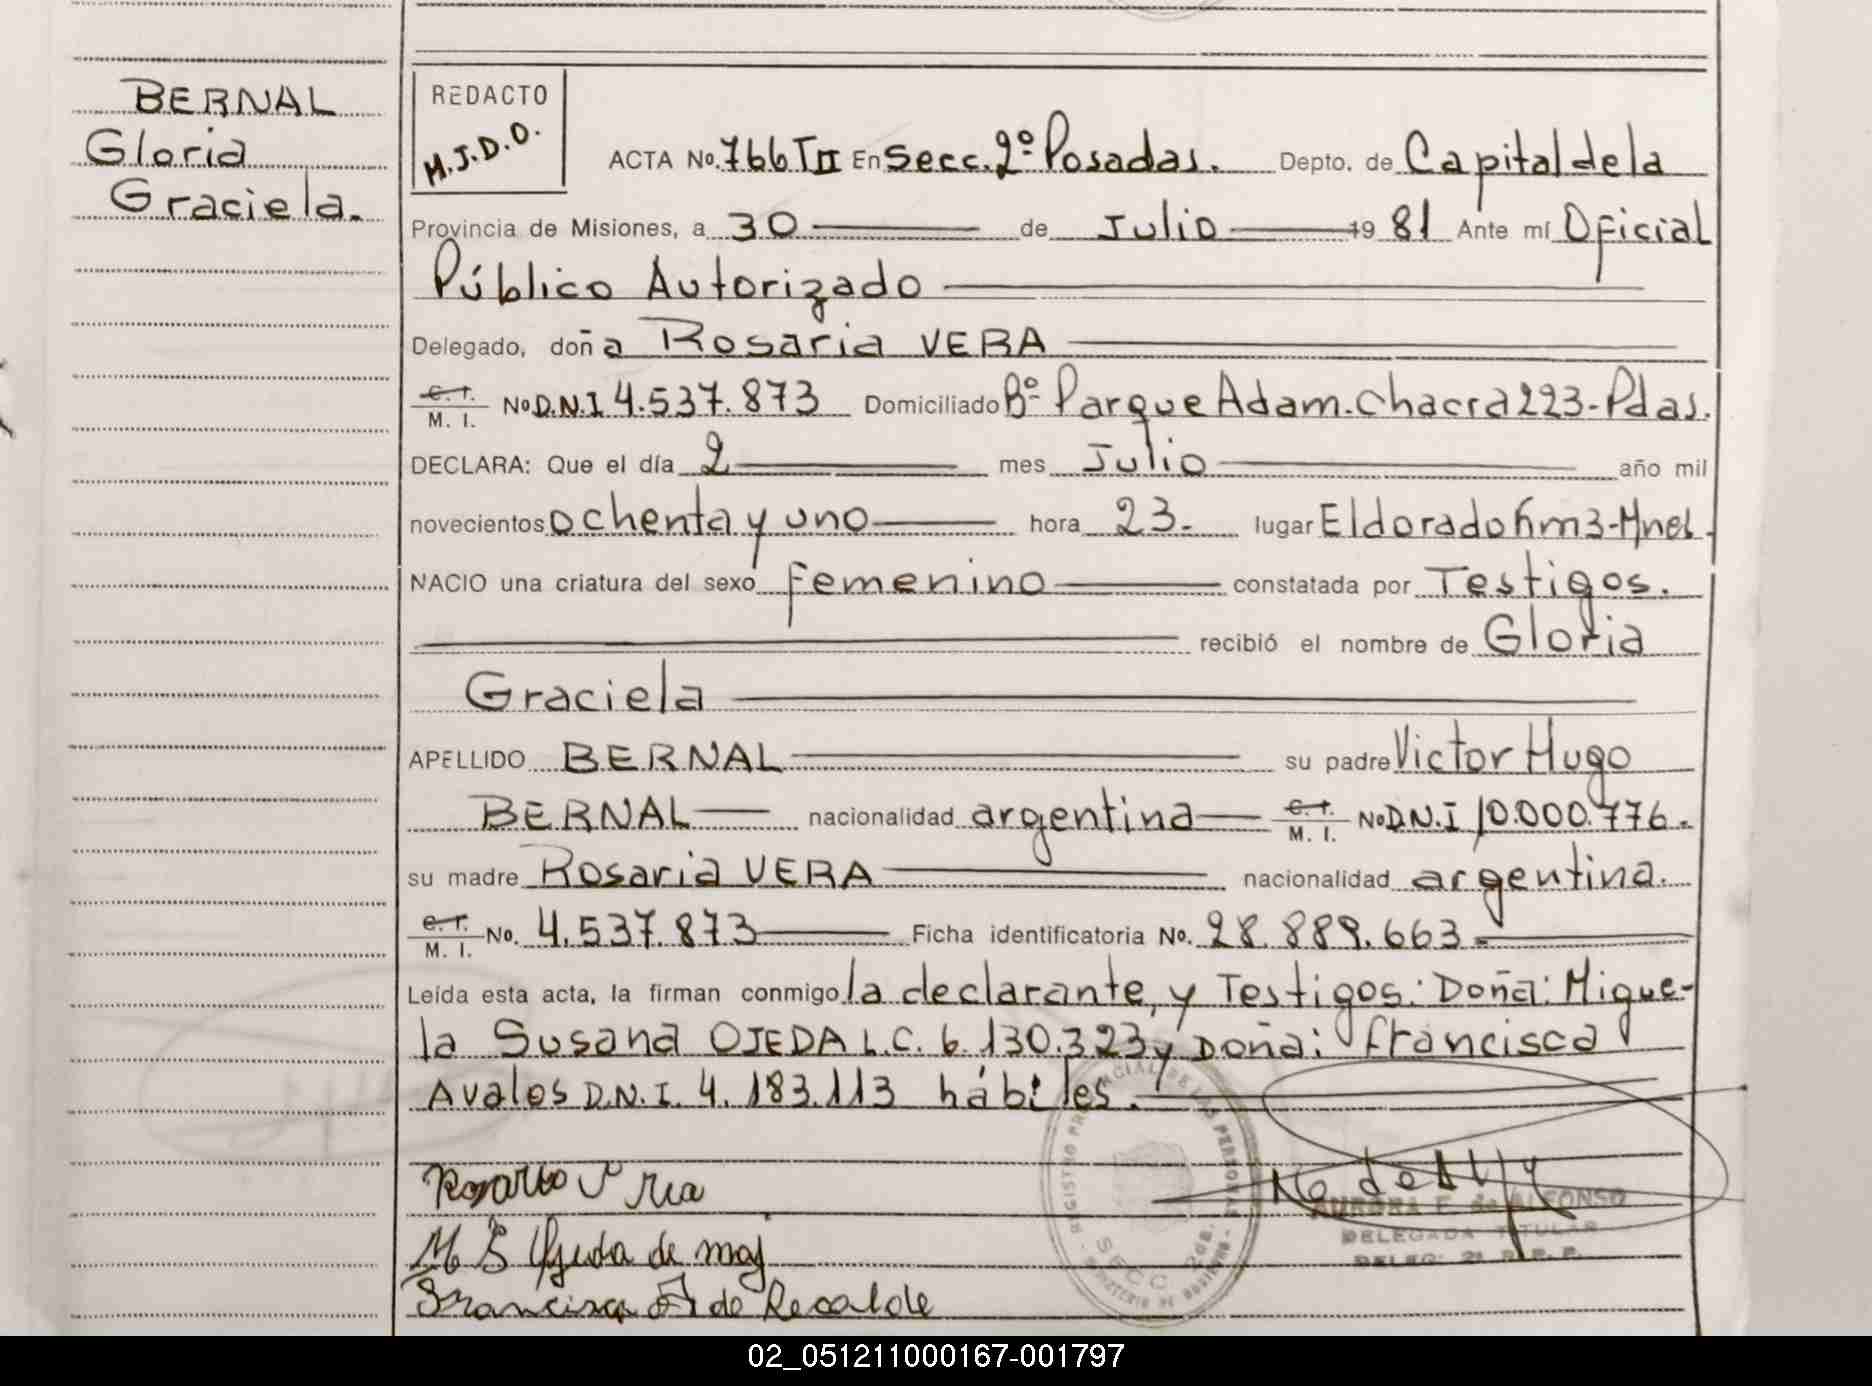 BERNAL
Gloria
Graciela.
REDACTO
M.J.D.O.
ACTA No. 766 T II En Secc. 2º Posadas. Depto. de Capital de la
Provincia de Misiones, a 30 de Julio 19 81 Ante mí Oficial
Público Autorizado
Delegado, doña Rosaria VERA
C. I. / M. I. No D.N.I 4.537.873 Domiciliado Bº Parque Adam. Chacra 223 - Pdas.
DECLARA: Que el día 2 mes Julio año mil
novecientos ochenta y uno hora 23. lugar Eldorado Km 3 - Mnes.
NACIO una criatura del sexo femenino constatada por Testigos.
recibió el nombre de Gloria
Graciela
APELLIDO BERNAL su padre Victor Hugo
BERNAL nacionalidad argentina C. I. / M. I. No D.N.I 10.000.776.
su madre Rosaria VERA nacionalidad argentina.
C. I. / M. I. No. 4.537.873 Ficha identificatoria No. 28.889.663.
Leída esta acta, la firman conmigo la declarante, y Testigos: Doña: Migue-
la Susana OJEDA L.C. 6.130.323 y Doña: Francisca
Avalos D.N.I. 4.183.113 hábiles.
REGISTRO PROVINCIAL DE LAS PERSONAS
SECC. 2
AURORA E. de ALFONSO
DELEGADA TITULAR
DELEG. 2ª R. P. P.
M S Ojeda de
Francisca A de Recalde
02_051211000167-001797